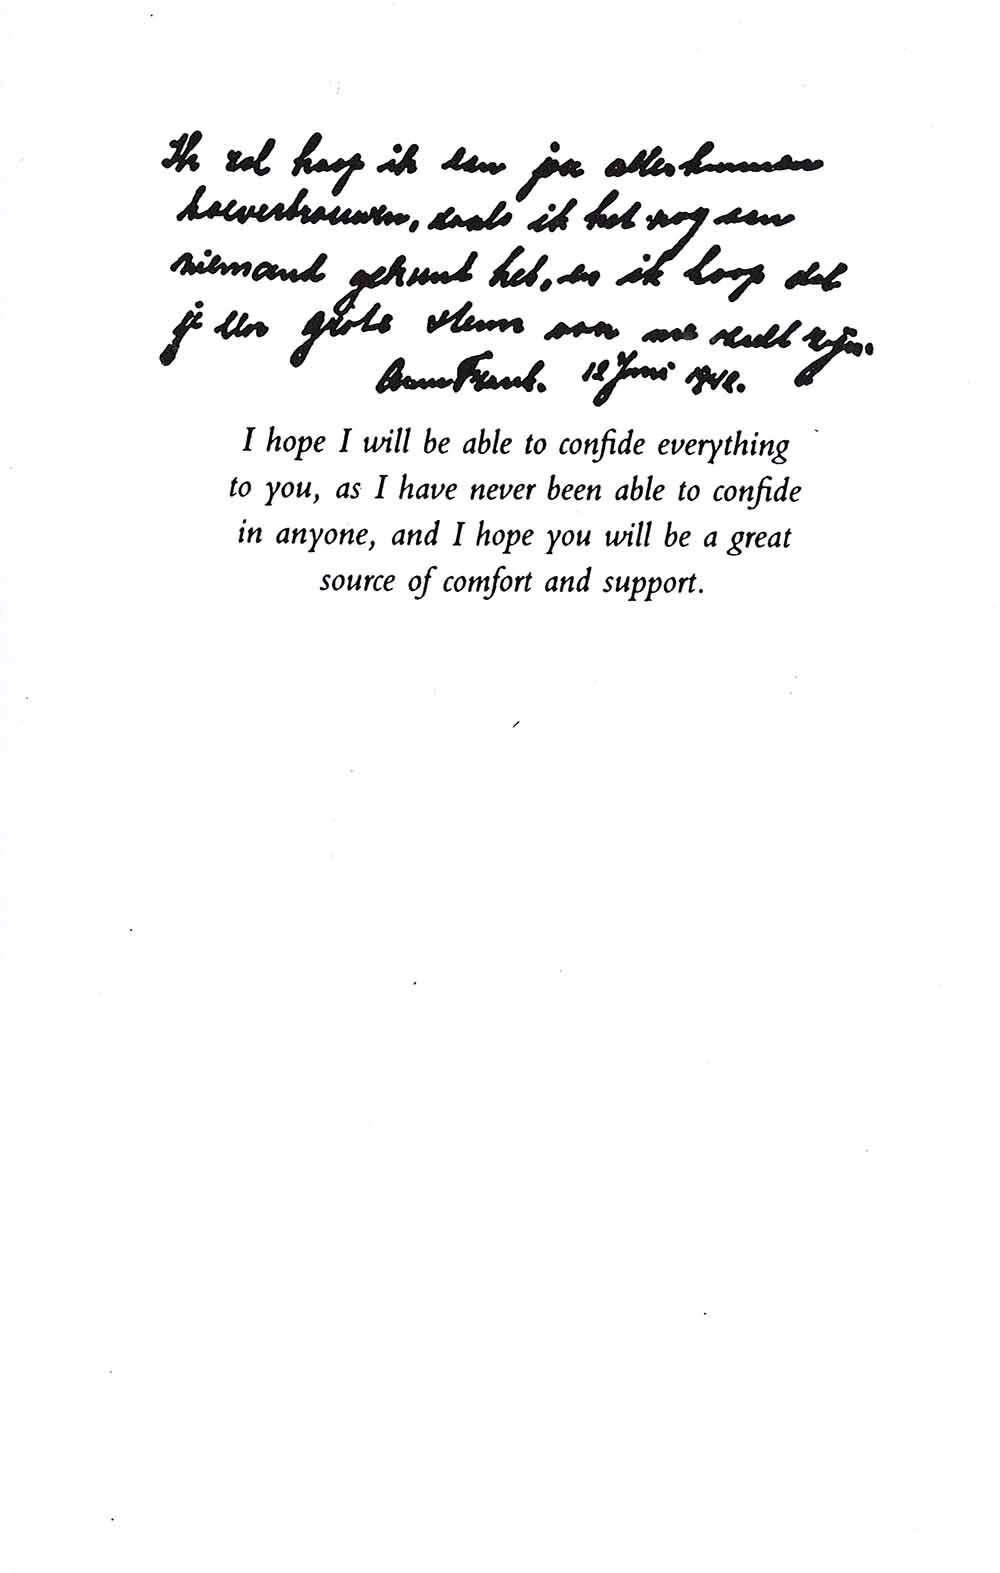 Ik zal hoop ik aan jou alles kunnen
toevertrouwen, zoals ik het nog aan
niemand gekunt heb, en ik hoop dat
je een grote steun voor me zult zijn.
Anne Frank. 12 Juni 1942.
I hope I will be able to confide everything
to you, as I have never been able to confide
in anyone, and I hope you will be a great
source of comfort and support.